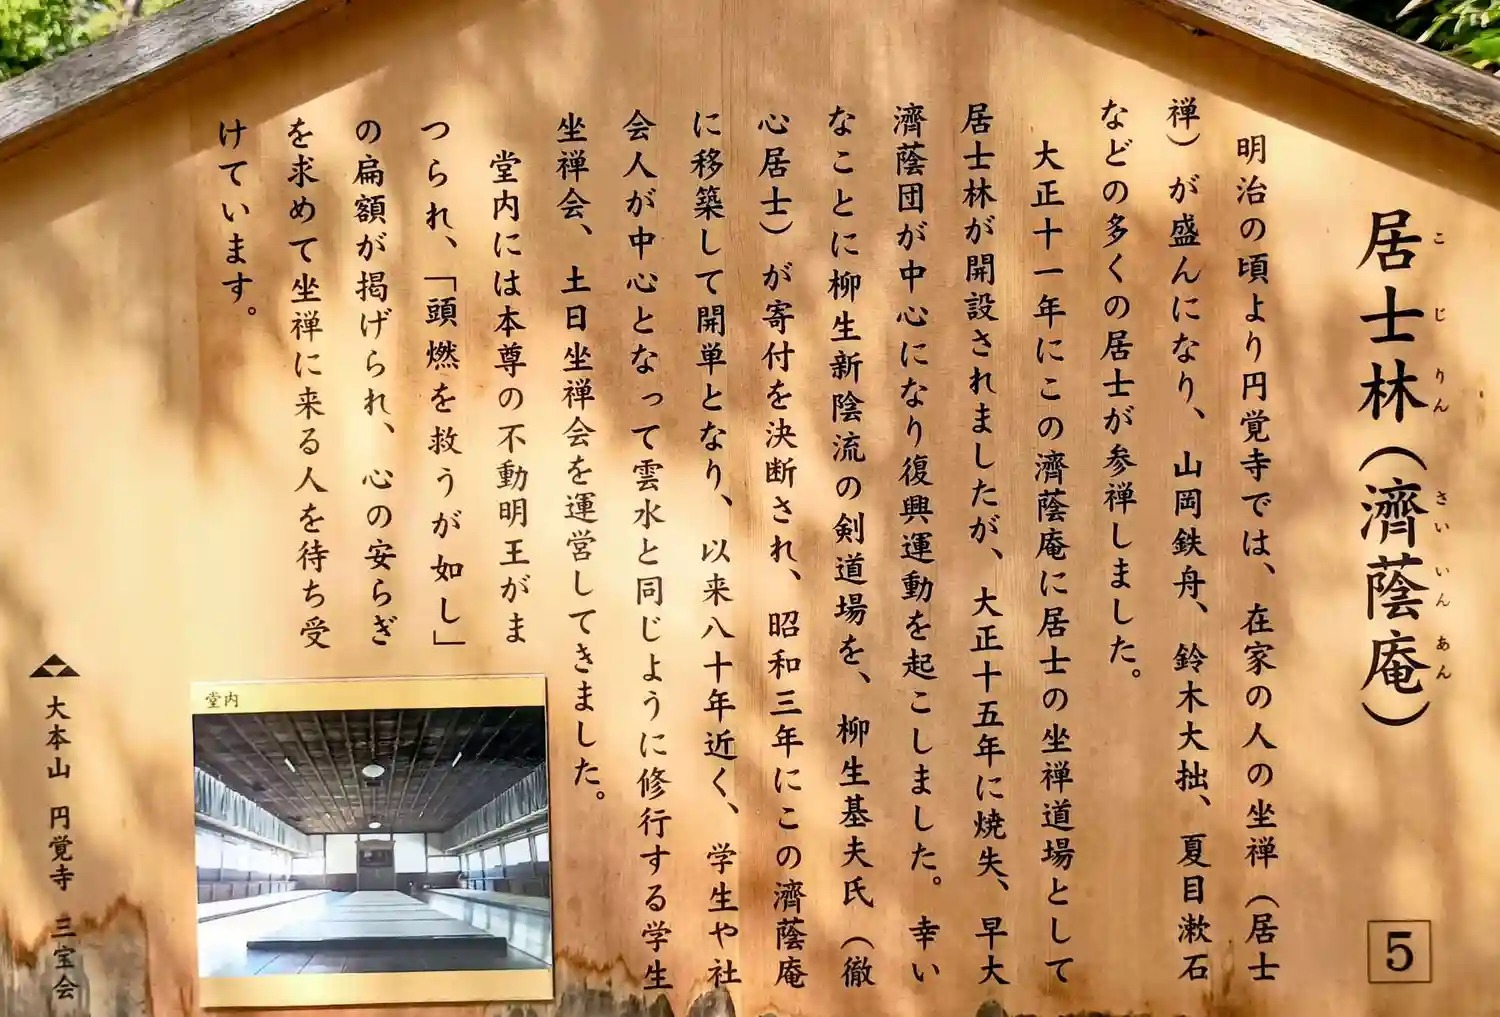 居士林（濟蔭庵）
こじりん さいいんあん
明治の頃より円覚寺では、在家の人の坐禅（居士
禅）が盛んになり、山岡鉄舟、鈴木大拙、夏目漱石
などの多くの居士が参禅しました。
大正十一年にこの濟蔭庵に居士の坐禅道場として
居士林が開設されましたが、大正十五年に焼失、早大
濟蔭団が中心になり復興運動を起こしました。幸い
なことに柳生新陰流の剣道場を、柳生基夫氏（徹
心居士）が寄付を決断され、昭和三年にこの濟蔭庵
に移築して開単となり、以来八十年近く、学生や社
会人が中心となって雲水と同じように修行する学生
坐禅会、土日坐禅会を運営してきました。
堂内には本尊の不動明王がま
つられ、「頭燃を救うが如し」
の扁額が掲げられ、心の安らぎ
を求めて坐禅に来る人を待ち受
けています。
5
堂内
大本山 円覚寺 三宝会